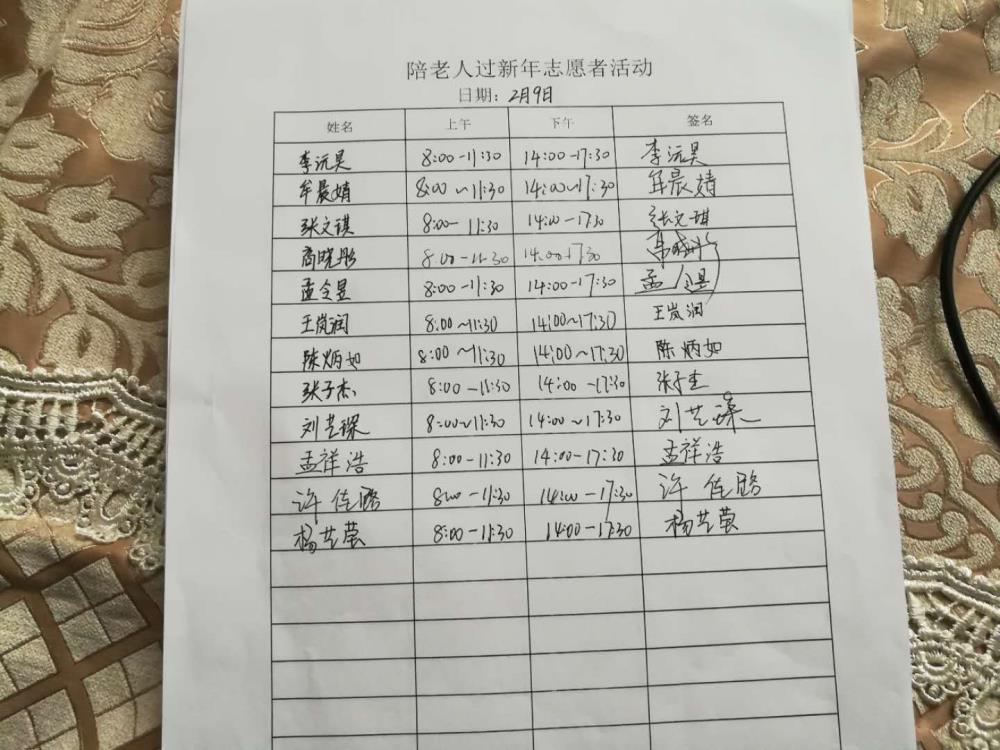 陪老人过新年志愿者活动
日期：2月9日
姓名 上午 下午 签名
李沅昊 8:00-11:30 14:00-17:30 李沅昊
牟晨婧 8:00~11:30 14:00~17:30 牟晨婧
张文琪 8:00-11:30 14:00-17:30 张文琪
商晓彤 8:00-11:30 14:00-17:30
孟令昱 8:00-11:30 14:00-17:30 孟令昱
王岚润 8:00~11:30 14:00~17:30 王岚润
陈炳如 8:00~11:30 14:00~17:30 陈炳如
张子杰 8:00-11:30 14:00-17:30 张子杰
刘艺琛 8:00~11:30 14:00~17:30 刘艺琛
孟祥浩 8:00-11:30 14:00-17:30 孟祥浩
许佳璐 8:00-11:30 14:00-17:30 许佳璐
杨艺萤 8:00-11:30 14:00-17:30 杨艺萤